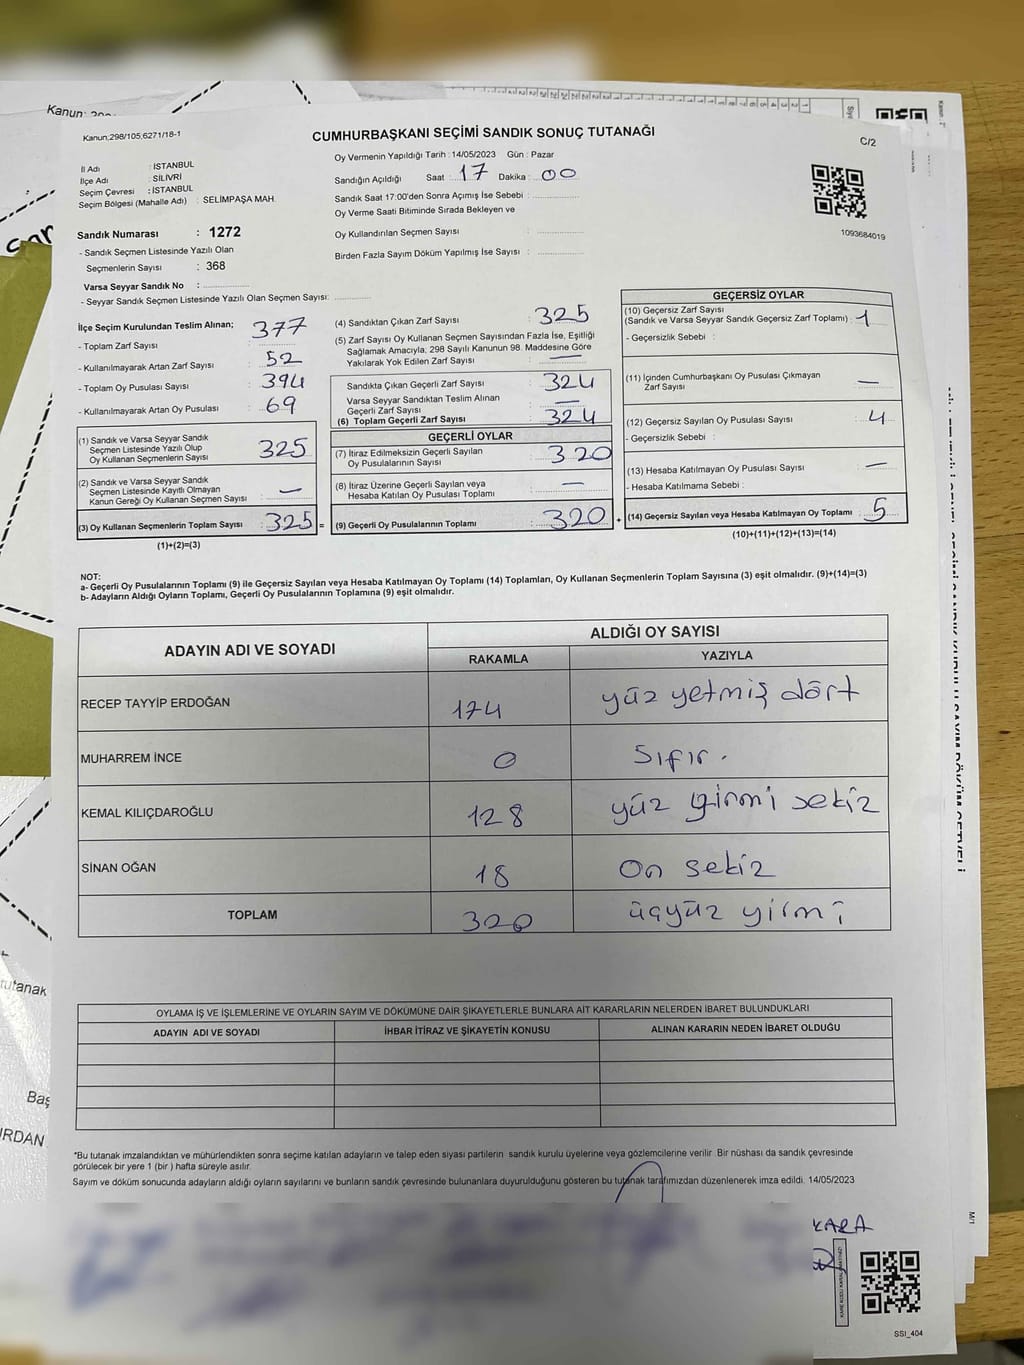 Kanun: 298
Kanun;298/105,6271/18-1
CUMHURBAŞKANI SEÇİMİ SANDIK SONUÇ TUTANAĞI
C/2
İl Adı : İSTANBUL
İlçe Adı : SİLİVRİ
Seçim Çevresi : İSTANBUL
Seçim Bölgesi (Mahalle Adı) : SELİMPAŞA MAH.
Oy Vermenin Yapıldığı Tarih : 14/05/2023 Gün : Pazar
Sandığın Açıldığı Saat : 17 Dakika : 00
Sandık Saat 17:00'den Sonra Açımış İse Sebebi :
Oy Verme Saati Bitiminde Sırada Bekleyen ve
Oy Kullandırılan Seçmen Sayısı :
Birden Fazla Sayım Döküm Yapılmış İse Sayısı :
1093684019
Sandık Numarası : 1272
- Sandık Seçmen Listesinde Yazılı Olan
Seçmenlerin Sayısı : 368
Varsa Seyyar Sandık No :
- Seyyar Sandık Seçmen Listesinde Yazılı Olan Seçmen Sayısı:
İlçe Seçim Kurulundan Teslim Alınan;
- Toplam Zarf Sayısı : 377
- Kullanılmayarak Artan Zarf Sayısı : 52
- Toplam Oy Pusulası Sayısı : 394
- Kullanılmayarak Artan Oy Pusulası : 69
(1) Sandık ve Varsa Seyyar Sandık
Seçmen Listesinde Yazılı Olup
Oy Kullanan Seçmenlerin Sayısı : 325
(2) Sandık ve Varsa Seyyar Sandık
Seçmen Listesinde Kayıtlı Olmayan
Kanun Gereği Oy Kullanan Seçmen Sayısı : —
(3) Oy Kullanan Seçmenlerin Toplam Sayısı : 325 =
(1)+(2)=(3)
(4) Sandıktan Çıkan Zarf Sayısı : 325
(5) Zarf Sayısı Oy Kullanan Seçmen Sayısından Fazla İse, Eşitliği
Sağlamak Amacıyla, 298 Sayılı Kanunun 98. Maddesine Göre
Yakılarak Yok Edilen Zarf Sayısı : —
Sandıkta Çıkan Geçerli Zarf Sayısı : 324
Varsa Seyyar Sandıktan Teslim Alınan
Geçerli Zarf Sayısı : —
(6) Toplam Geçerli Zarf Sayısı : 324
GEÇERLİ OYLAR
(7) İtiraz Edilmeksizin Geçerli Sayılan
Oy Pusulalarının Sayısı : 320
(8) İtiraz Üzerine Geçerli Sayılan veya
Hesaba Katılan Oy Pusulası Toplamı : —
(9) Geçerli Oy Pusulalarının Toplamı : 320 +
GEÇERSİZ OYLAR
(10) Geçersiz Zarf Sayısı
(Sandık ve Varsa Seyyar Sandık Geçersiz Zarf Toplamı) : 1
- Geçersizlik Sebebi :
(11) İçinden Cumhurbaşkanı Oy Pusulası Çıkmayan
Zarf Sayısı : —
(12) Geçersiz Sayılan Oy Pusulası Sayısı : 4
- Geçersizlik Sebebi :
(13) Hesaba Katılmayan Oy Pusulası Sayısı : —
- Hesaba Katılmama Sebebi :
(14) Geçersiz Sayılan veya Hesaba Katılmayan Oy Toplamı : 5
(10)+(11)+(12)+(13)=(14)
NOT:
a- Geçerli Oy Pusulalarının Toplamı (9) ile Geçersiz Sayılan veya Hesaba Katılmayan Oy Toplamı (14) Toplamları, Oy Kullanan Seçmenlerin Toplam Sayısına (3) eşit olmalıdır. (9)+(14)=(3)
b- Adayların Aldığı Oyların Toplamı, Geçerli Oy Pusulalarının Toplamına (9) eşit olmalıdır.
ADAYIN ADI VE SOYADI ALDIĞI OY SAYISI
RAKAMLA YAZIYLA
RECEP TAYYİP ERDOĞAN 174 yüz yetmiş dört
MUHARREM İNCE 0 Sıfır.
KEMAL KILIÇDAROĞLU 128 yüz yirmi sekiz
SİNAN OĞAN 18 On sekiz
TOPLAM 320 üçyüz yirmi
OYLAMA İŞ VE İŞLEMLERİNE VE OYLARIN SAYIM VE DÖKÜMÜNE DAİR ŞİKAYETLERLE BUNLARA AİT KARARLARIN NELERDEN İBARET BULUNDUKLARI
ADAYIN ADI VE SOYADI İHBAR İTİRAZ VE ŞİKAYETİN KONUSU ALINAN KARARIN NEDEN İBARET OLDUĞU
*Bu tutanak imzalandıktan ve mühürlendikten sonra seçime katılan adayların ve talep eden siyasi partilerin sandık kurulu üyelerine veya gözlemcilerine verilir. Bir nüshası da sandık çevresinde
görülecek bir yere 1 (bir ) hafta süreyle asılır.
Sayım ve döküm sonucunda adayların aldığı oyların sayılarını ve bunların sandık çevresinde bulunanlara duyurulduğunu gösteren bu tutanak tarafımızdan düzenlenerek imza edildi. 14/05/2023
KARA
SSI_404
tutanak
Baş
IRDAN
M/1